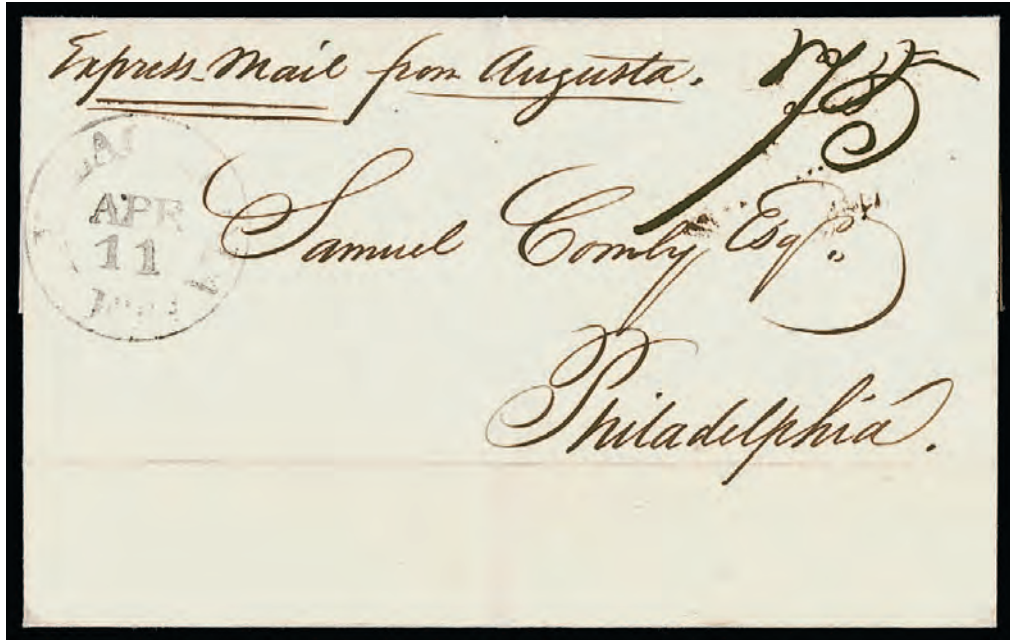 Express Mail from Augusta. 75
APR
11
Samuel Comly Esqr.
Philadelphia.